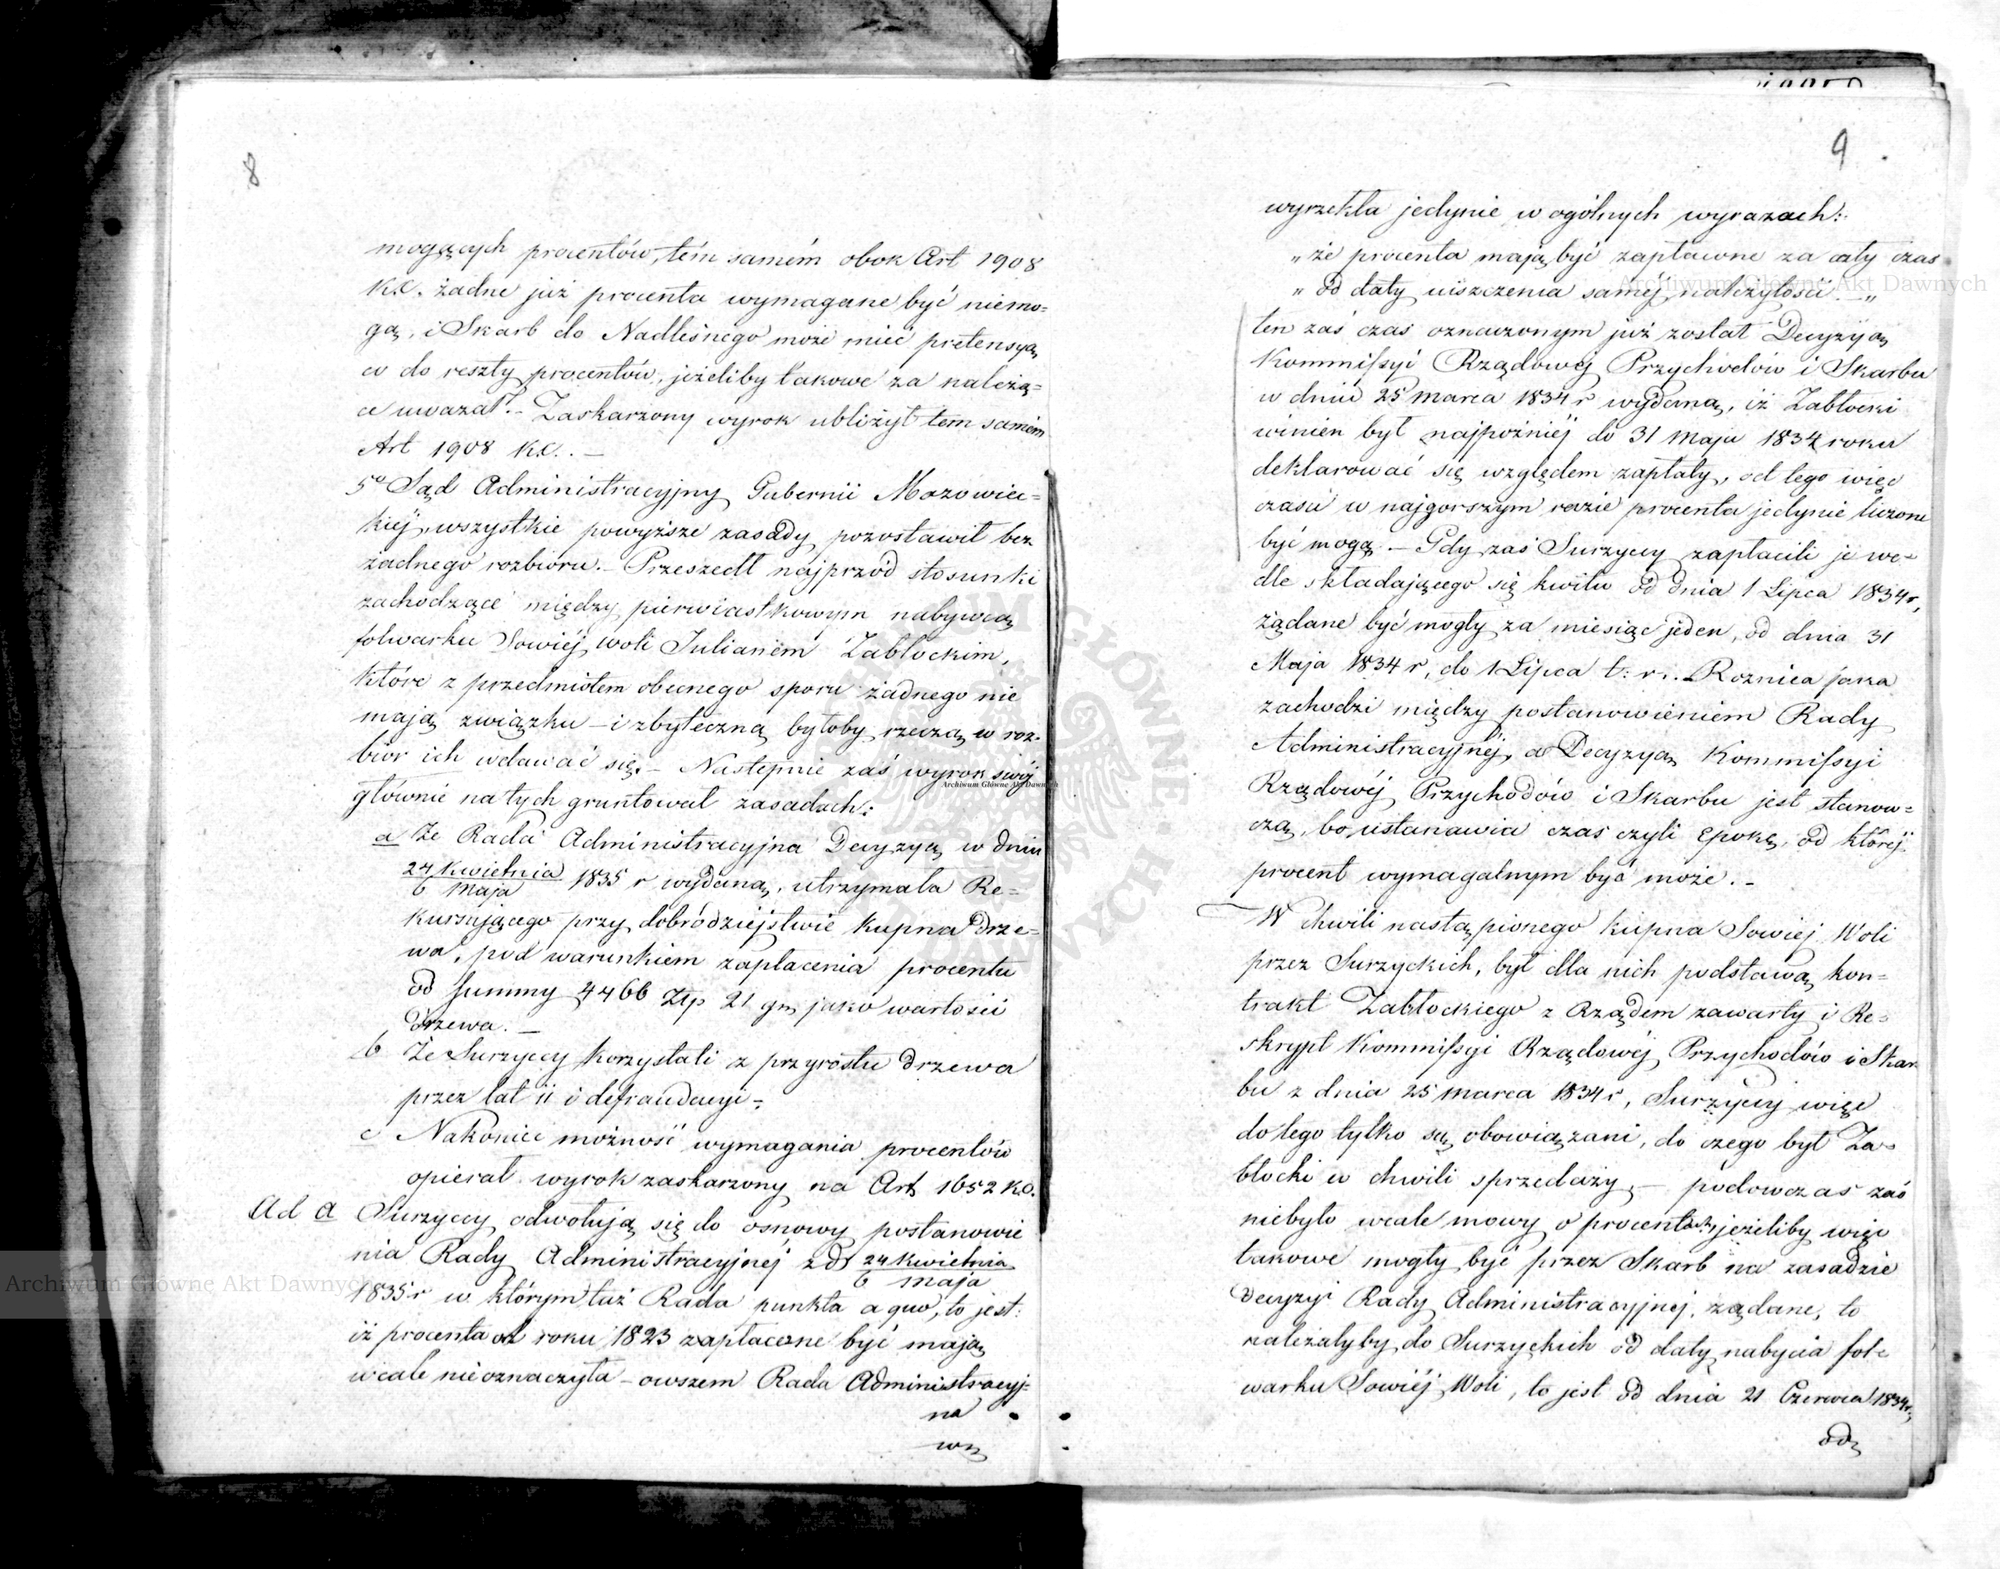 8
mogących procentów, tém samém obok Art 1908
K.C. żadne już procenta wymagane być niemo-
gą, i Skarb do Nadleśnego może mieć pretensyą
co do reszty procentów, jeżeliby takowe za należą-
ce uważał. – Zaskarżony wyrok ubliżył tem samém
Art 1908 K.C. –
5o Sąd Administracyjny Gubernii Mazowiec-
kiéj, wszystkie powyższe zasady pozostawił bez
żadnego rozbioru. – Przeszedł najprzód stosunki
zachodzące między pierwiastkowym nabywcą
folwarku Sowiéj woli Julianem Zabłockim,
które z przedmiotem obecnego sporu żadnego nie
mają związku – i zbyteczną byłoby rzeczą w roz-
biór ich wdawać się. – Następnie zaś wyrok swój
głównie na tych gruntował zasadach:
a Że Rada Administracyjna Decyzyą w dniu
24 Kwietnia
6 Maja 1835 r wydaną, utrzymała Re-
kursującego przy dobrodziejstwie kupna drze-
wa, pod warunkiem zapłacenia procentu
od Summy 4466 Złp 21 gr, jako wartości
drzewa. –
b Że Surzyccy korzystali z przyrostu drzewa
przez lat 11 i defraudacyi –
c Nakoniec możność wymagania procentów
opierał wyrok zaskarżony na Art 1652 K.C.
Ad a Surzyccy odwołują się do osnowy postanowie
nia Rady Administracyjnéj z d. 24 Kwietnia
6 Maja
1835 r w którym taż Rada punkta a quo, to jest:
iż procenta od roku 1823 zapłacone być mają
wcale nieoznaczyła – owszem Rada Administracyj-
na
wy
9
wyrzekła jedynie w ogólnych wyrazach:
„ że procenta mają być zapłacone za cały czas
„ od daty uiszczenia saméj należytości. – „
ten zaś czas oznaczonym już został Decyzyą
Kommissyi Rządowéj Przychodów i Skarbu
w dniu 25 Marca 1834 r wydaną, iż Zabłocki
winien był najpóźniéj do 31 Maja 1834 roku
deklarować się względem zapłaty, od tego więc
czasu w najgorszym razie procenta jedynie liczone
być mogą. – Gdy zaś Surzyccy zapłacili je we-
dle składającego się kwitu od dnia 1 Lipca 1834 r,
żądane być mogły za miesiąc jeden, od dnia 31
Maja 1834 r, do 1 Lipca t: r:. Roznica jaka
zachodzi między postanowieniem Rady
Administracyjnéj, a Decyzyą Kommissyi
Rządowéj Przychodów i Skarbu jest stanow-
czą, bo ustanawia czas czyli epokę, od któréj
procent wymagalnym być może. –
W chwili nastąpionego kupna Sowiéj Woli
przez Surzyckich, był dla nich podstawą kon-
trakt Zabłockiego z Rządem zawarty i Re-
skrypt Kommissyi Rządowéj Przychodów i Skar
bu z dnia 25 Marca 1834 r, Surzyccy więc
do tego tylko są obowiązani, do czego był Za-
błocki w chwili sprzedaży – podowczas zaś
niebyło wcale mowy o procentach, jeżeliby więc
takowe mogły być przez Skarb na zasadzie
Decyzyi Rady Administracyjnej żądane, to
należałyby do Surzyckich od daty nabycia fol-
warku Sowiéj Woli, to jest od dnia 21 Czerwca 1834 r,
od
Archiwum Główne Akt Dawnych
Archiwum Główne Akt Dawnych
Archiwum Główne Akt Dawnych